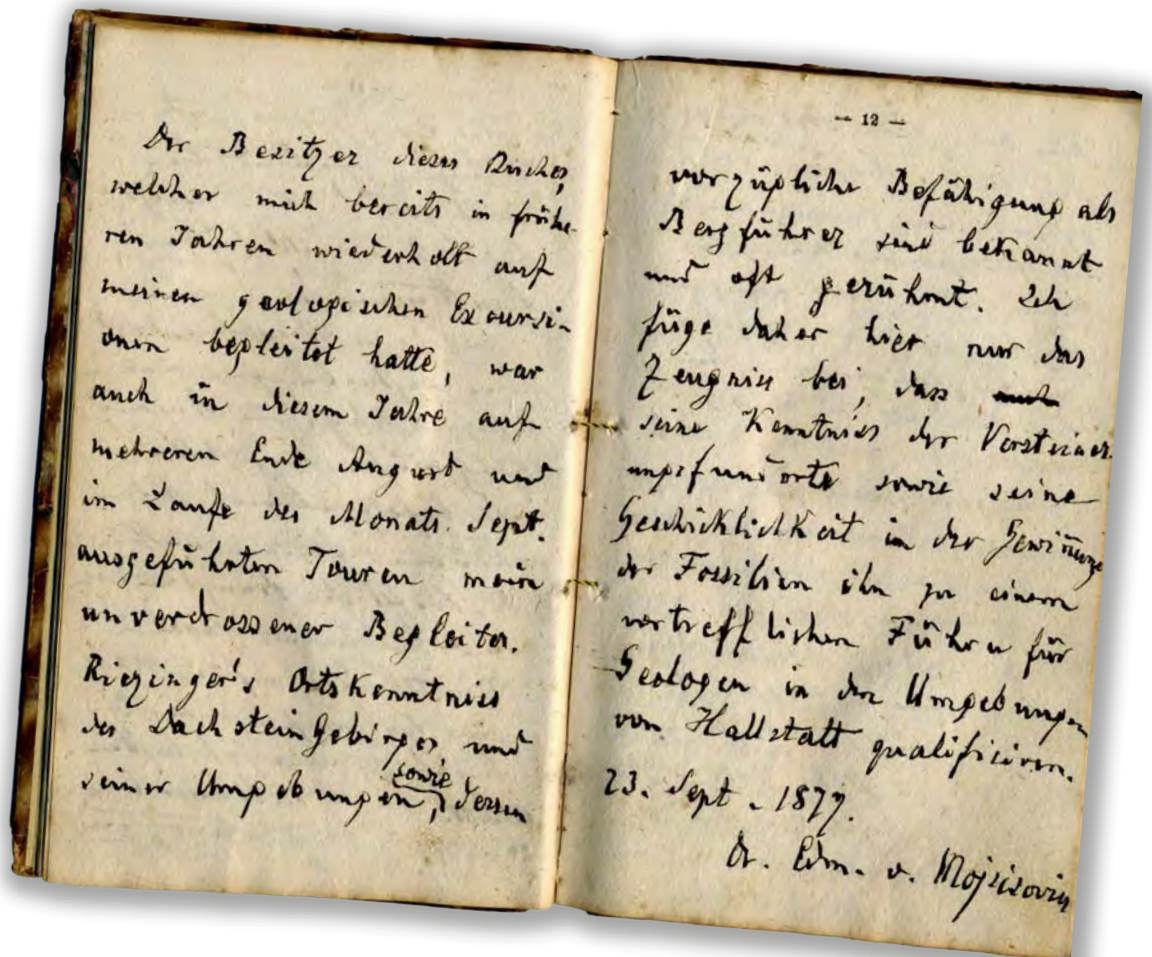 Der Besitzer dieses Buches,
welcher mich bereits in frühe-
ren Jahren wiederholt auf
meinen geologischen Excursi-
onen begleitet hatte, war
auch in diesem Jahre auf
mehreren Ende August und
im Laufe des Monats Sept.
ausgeführten Touren mein
unverdrossener Begleiter.
Riezinger's Ortskenntniss
des Dachsteingebirges und
seiner Umgebungen, sowie dessen
— 12 —
vorzügliche Befähigung als
Bergführer sind bekannt
und oft gerühmt. Ich
füge daher hier nur das
Zeugniss bei, dass
seine Kenntniss der Versteiner-
ungsfundorte sowie seine
Geschicklichkeit in der Gewinnung
der Fossilien ihn zu einem
vortrefflichen Führer für
Geologen in den Umgebungen
von Hallstatt qualificiren.
23. Sept. 1877.
Dr. Edm. v. Mojsisovics